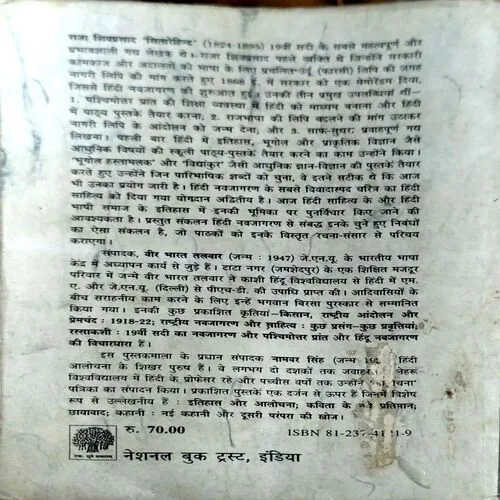 राजा शिवप्रसाद 'सितारेहिन्द' (1824-1895) 19वीं सदी के सबसे महत्वपूर्ण और
प्रभावशाली गद्य लेखक थे। राजा शिवप्रसाद पहले व्यक्ति थे जिन्होंने सरकारी
कामकाज और अदालतों की भाषा के लिए प्रचलित उर्दू (फारसी) लिपि की जगह
नागरी लिपि की मांग करते हुए 1868 ई. में सरकार को एक मेमोरेंडम दिया,
जिससे हिंदी नवजागरण की शुरुआत हुई। उनकी तीन प्रमुख उपलब्धियां थीं—
1. पश्चिमोत्तर प्रांत की शिक्षा व्यवस्था में हिंदी को माध्यम बनाना और हिंदी
में पाठ्य पुस्तकें तैयार करना; 2. राजभाषा की लिपि बदलने की मांग उठाकर
नागरी लिपि के आंदोलन को जन्म देना; और 3. साफ-सुथरा प्रवाहपूर्ण गद्य
लिखना। पहली बार हिंदी में इतिहास, भूगोल और प्राकृतिक विज्ञान जैसे
आधुनिक विषयों की स्कूली पाठ्य-पुस्तकें तैयार करने का काम उन्होंने किया।
'भूगोल हस्तामलक' और 'विद्यांकुर' जैसी आधुनिक ज्ञान-विज्ञान की पुस्तकें तैयार
करते हुए उन्होंने जिन पारिभाषिक शब्दों को चुना, वे इतने सटीक थे कि आज
भी उनका प्रयोग जारी है। हिंदी नवजागरण के सबसे विवादास्पद चरित्र का हिंदी
साहित्य को दिया गया योगदान अद्वितीय है। आज हिंदी साहित्य के और हिंदी
भाषी समाज के इतिहास में इनकी भूमिका पर पुनर्विचार किए जाने की
आवश्यकता है। प्रस्तुत संकलन हिंदी नवजागरण से संबद्ध इनके चुने हुए निबंधों
का ऐसा संकलन है, जो पाठकों को इनके विस्तृत रचना-संसार से परिचय
कराएगा।
संपादक, वीर भारत तलवार (जन्म : 1947) जे.एन.यू. के भारतीय भाषा
केंद्र में अध्यापन कार्य से जुड़े हैं। टाटा नगर (जमशेदपुर) के एक शिक्षित मजदूर
परिवार में जन्मे वीर भारत तलवार ने काशी हिंदू विश्वविद्यालय से हिंदी में एम.
ए. और जे.एन.यू. (दिल्ली) से पीएच.डी. की उपाधि प्राप्त की। आदिवासियों के
बीच सराहनीय काम करने के लिए इन्हें भगवान बिरसा पुरस्कार से सम्मानित
किया गया। इनकी कुछ प्रकाशित कृतियां—किसान, राष्ट्रीय आंदोलन और
प्रेमचंद : 1918-22; राष्ट्रीय नवजागरण और साहित्य : कुछ प्रसंग-कुछ प्रवृत्तियां;
रस्साकशी : 19वीं सदी का नवजागरण और पश्चिमोत्तर प्रांत और हिंदू नवजागरण
की विचारधारा हैं।
इस पुस्तकमाला के प्रधान संपादक नामवर सिंह (जन्म हिंदी
आलोचना के शिखर पुरुष हैं। वे लगभग दो दशकों तक
विश्वविद्यालय में हिंदी के प्रोफेसर रहे और पच्चीस वर्षों तक उन्होंने
पत्रिका का संपादन किया। प्रकाशित पुस्तकें एक दर्जन से ऊपर हैं जिनमें विशेष
रूप से उल्लेखनीय हैं : इतिहास और आलोचना; कविता के प्रतिमान;
छायावाद; कहानी : नई कहानी और दूसरी परंपरा की खोज।
रु. 70.00
ISBN 81-237-
नेशनल बुक ट्रस्ट, इंडिया